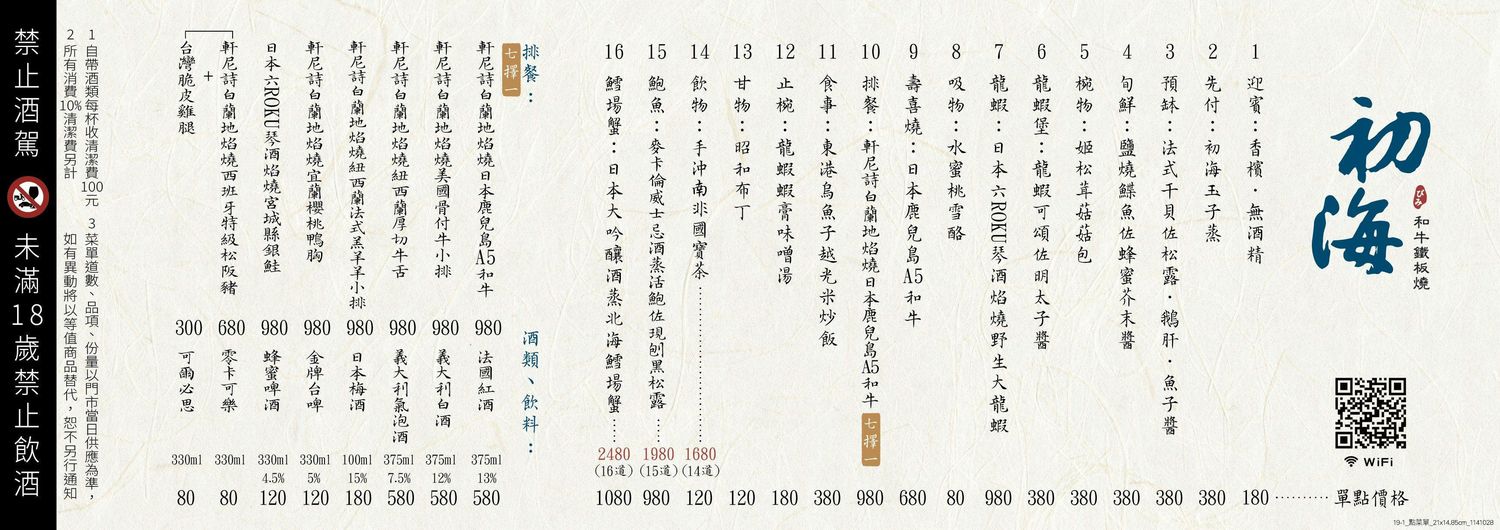 初海
びみ
和牛鐵板燒
WiFi
單點價格
1 迎賓：香檳・無酒精 180
2 先付：初海玉子蒸 380
3 預缽：法式干貝佐松露・鵝肝・魚子醬 380
4 旬鮮：鹽燒鰈魚佐蜂蜜芥末醬 380
5 椀物：姬松茸菇菇包 380
6 龍蝦堡：龍蝦可頌佐明太子醬 380
7 龍蝦：日本六ROKU琴酒焰燒野生大龍蝦 980
8 吸物：水蜜桃雪酪 80
9 壽喜燒：日本鹿兒島A5和牛 680
10 排餐：軒尼詩白蘭地焰燒日本鹿兒島A5和牛 七擇一 980
11 食事：東港烏魚子越光米炒飯 380
12 止椀：龍蝦蝦膏味噌湯 180
13 甘物：昭和布丁 120
14 飲物：手沖南非國寶茶 1680 (14道) 120
15 鮑魚：麥卡倫威士忌酒蒸活鮑佐現刨黑松露 1980 (15道) 980
16 鱈場蟹：日本大吟釀酒蒸北海鱈場蟹 2480 (16道) 1080
排餐：
七擇一
軒尼詩白蘭地焰燒日本鹿兒島A5和牛 980
軒尼詩白蘭地焰燒美國骨付牛小排 980
軒尼詩白蘭地焰燒紐西蘭厚切牛舌 980
軒尼詩白蘭地焰燒紐西蘭法式羔羊羊小排 980
軒尼詩白蘭地焰燒宜蘭櫻桃鴨胸 980
日本六ROKU琴酒焰燒宮城縣銀鮭 980
軒尼詩白蘭地焰燒西班牙特級松阪豬 680
+
台灣脆皮雞腿 300
酒類、飲料：
法國紅酒 375ml 13% 580
義大利白酒 375ml 12% 580
義大利氣泡酒 375ml 7.5% 580
日本梅酒 100ml 15% 180
金牌台啤 330ml 5% 120
蜂蜜啤酒 330ml 4.5% 120
零卡可樂 330ml 80
可爾必思 330ml 80
1 自帶酒類每杯收清潔費100元
2 所有消費10%清潔費另計
3 菜單道數、品項、份量以門市當日供應為準，
如有異動將以等值商品替代，恕不另行通知
禁止酒駕 未滿18歲禁止飲酒
19-1_點菜單_21x14.85cm_1141028